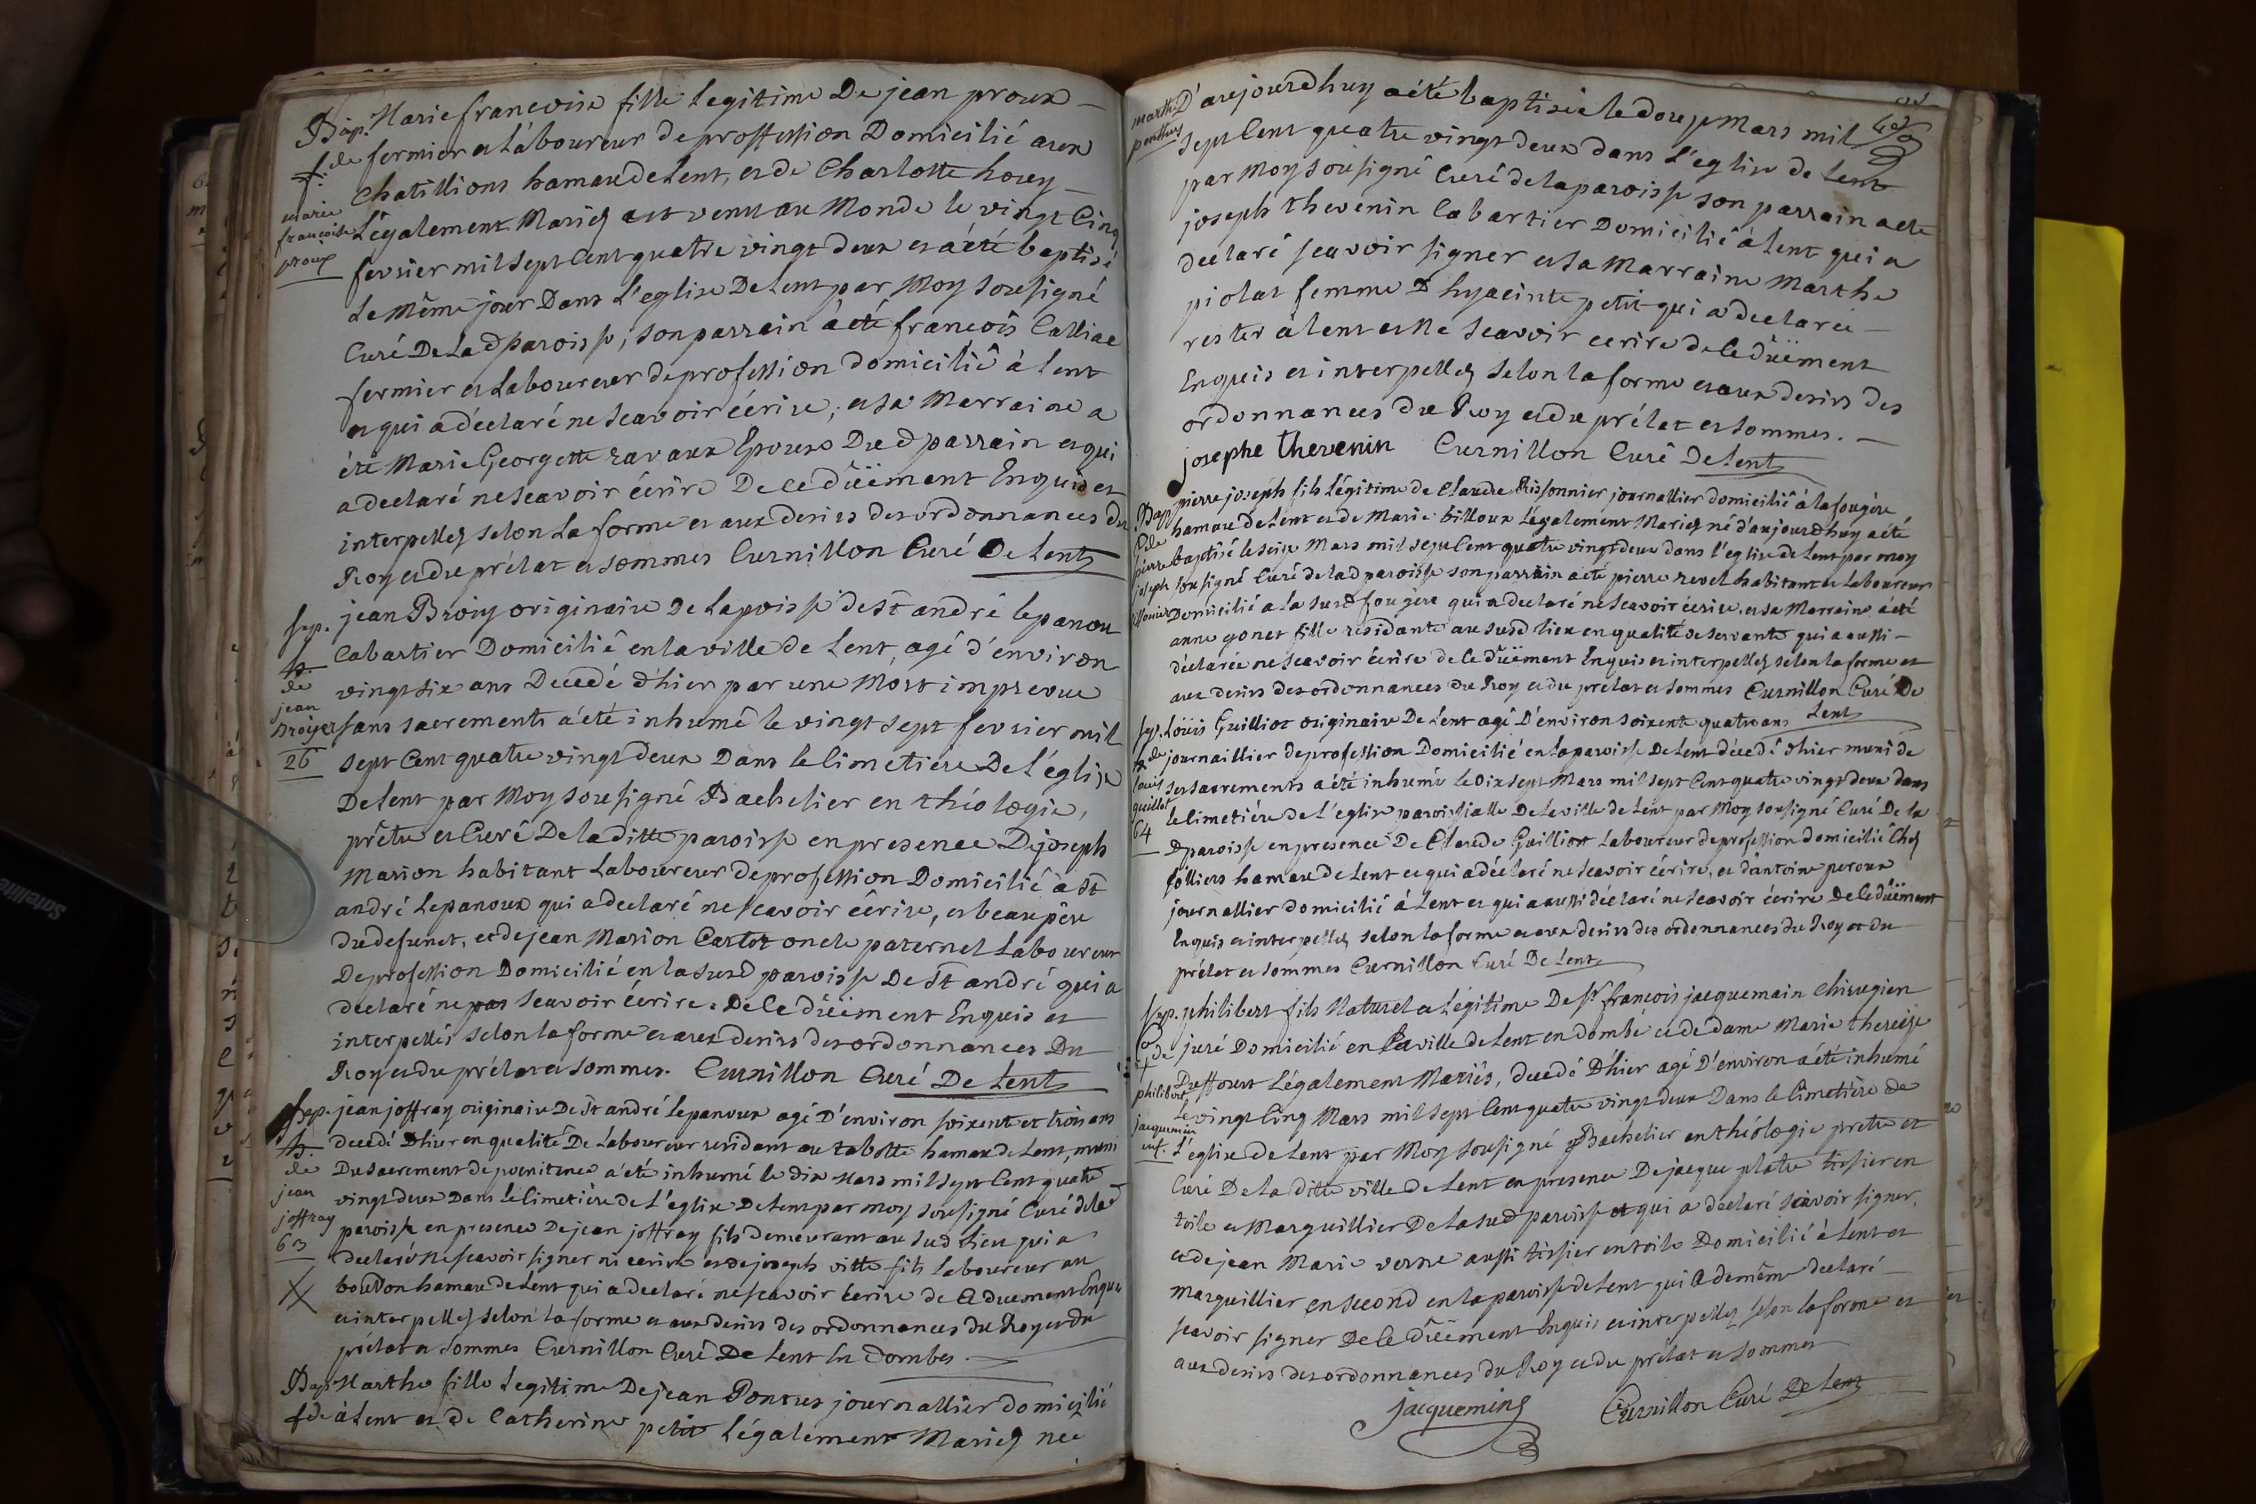 Bap. Marie francoise fille Legitime De jean proux
f. de fermier et Laboureur de proffession Domicilié aux
Chatillions hamau de Lent, et de Charlotte
marie Légalement Mariez est venu au Monde le vingt Cinq
francoise fevrier mil Sept Cent quatre vingt deux et a été baptisé
proux Le Même jour Dans L'eglise De Lent par Moy Sousigné
Curé De Lad paroisse, son parrain à eté francois
fermier et Laboureur de profession domicilié à Lent
et qui a déclaré ne Scavoir écrire, et sa Marraine a
été Marie Georgette ravaux Epouse Dud parrain et qui
a declaré ne Scavoir écrire De ce dûëment Enquis et
interpellez selon La forme et aux desirs des ordonnances du
Roy et du prélat et sommes Curnillon Curé De Lent
sep. jean Broiy originaire De Lapoisse de St andré lepanou
h. Cabartier Domicilié en la ville de Lent, agé d'environ
de vingt six ans Decedé d'hier par une Mort imprevue
jean
Broiyer sans sacrements a été inhumé le vingt sept fevrier mil
26 sept Cent quatre vingt deux Dans le Cimetière De L'église
De Lent par Moy Sousigné Bachelier en théologie,
prêtre et Curé De la ditte paroisse en presence De joseph
Marion habitant Laboureur de profession Domicilié à St
andré Lepanoux qui a declaré ne scavoir écrire, et beau père
du defunct, et de jean Marion Cartot oncle paternel Laboureur
De profession Domicilié en la susd paroisse De St andré qui a
declaré ne pas Scavoir écrire. De Ce dûëment Enquis et
interpellés selon la forme et aux desirs des ordonnances Du
Roy et du prélat et sommes. Curnillon Curé De Lent
Sep. jean joffray originaire De St andré lepanoux agé D'environ soixente et trois ans
h. decedé D'hier en qualité De Laboureur residant au tabotte hamau de Lent, muni
de Du sacrement de poenitence a été inhumé le dix Mars mil sept Cent quatre
jean vingt deux Dans le Cimetière de L'eglise De Lent par moy sousigné Curé de lad
joffray paroisse en presence De jean joffray fils demeurant au sud lieu qui a
63 declaré ne scavoir signer ni ecrire et de joseph vitte fils Laboureur au
boullon hamau de Lent qui a declaré ne scavoir écrire de Ce duement Enquis
et interpellez selon la forme et aux desirs des ordonnances du Roy et du
prélat et sommes Curnillon Curé De Lent En Dombes.
Bap Marthe fille Legitime De jean Pontus journallier domicilié
f de à Lent et de Catherine petit Légalement Mariez née
marthe D'aujourdhuy a été baptisée le douze Mars mil
ponthus sept Cent quatre vingt deux dans L'eglise de Lent
par Moy Sousigné Curé de la paroisse son parrain a été
joseph thevenin Cabartier Domicilié à Lent qui a
declaré scavoir signer et sa Marraine Marthe
piolat femme D hyacinte petit qui a declaré
rester à Lent et Ne Scavoir ecrire de Ce dûëment
Enquis et interpellez selon la forme et aux desirs des
ordonnances du Roy et du prélat et sommes.
josephe thevenin Curnillon Curé De Lent
Bap pierre joseph fils Légitime de Claude Rissonnier journallier domicilié à la fougère
f de hamau de Lent et de Marie billoux Légalement Mariez né d'aujourdhuy a été
pierre baptisé le seise Mars mil sept Cent quatre vingt deux dans l'eglise de Lent par moy
joseph sousigné Curé de lad paroisse son parrain a été pierre revel habitant et Laboureur
Domicilié a la susd fougère qui a declaré ne scavoir écrire. et sa Marraine a été
anne gonet fille residante au susd lieu en qualité de servante qui a aussi
déclarée ne scavoir écrire de Ce dûëment Enquis et interpellez selon la forme et
aux desirs des ordonnances du Roy et du prélat et sommes Curnillon Curé De
Lent
sep. Loüis Guilliot originaire De Lent agé D'environ soixente quatre ans
h de journaillier de profession Domicilié en la paroisse De Lent décedé d'hier muni de
louis ses sacrements a été inhumé le dix sept Mars mil sept Cent quatre vingt deux dans
guillot le Cimetière de L'eglise paroissialle De la ville de Lent par Moy sousigné Curé De la
64 D paroisse en presence De Claude Guilliot Laboureur de profession domicilié Chez
folliers hamau de Lent et qui a déclaré ne scavoir écrire, et d'antoine peroux
journallier domicilié à Lent et qui a aussi déclaré ne scavoir écrire De Ce dûëment
Enquis et interpellez selon la forme et aux desirs des ordonnances du Roy et du
prélat et sommes Curnillon Curé De Lent
Sep. philibert fils Naturel et Légitime De Sr francois jacquemain Chirugien
f de juré Domicilié en la ville de Lent en dombe et de dame Marie therese
philibert Légalement Mariés, decedé D'hier agé D'environ a été inhumé
Le vingt Cinq Mars mil sept Cent quatre vingt deux Dans le Cimetière de
jacquemin
enf. L'eglise de Lent par Moy sousigné Bachelier en théologie pretre et
Curé De la ditte ville de Lent en presence De jacque platre tissier en
toile et Marguillier De la sud paroisse et qui a déclaré scavoir signer,
et de jean Marie verne aussi tissier en toile Domicilié à Lent et
marguillier en second en la paroisse de Lent qui a de même declaré
scavoir signer De Ce Dûëment Enquis et interpellez selon la forme et
aux desirs des ordonnances du Roy et du prélat et sommes
jacquemins Curnillon Curé De Lent
Satellite